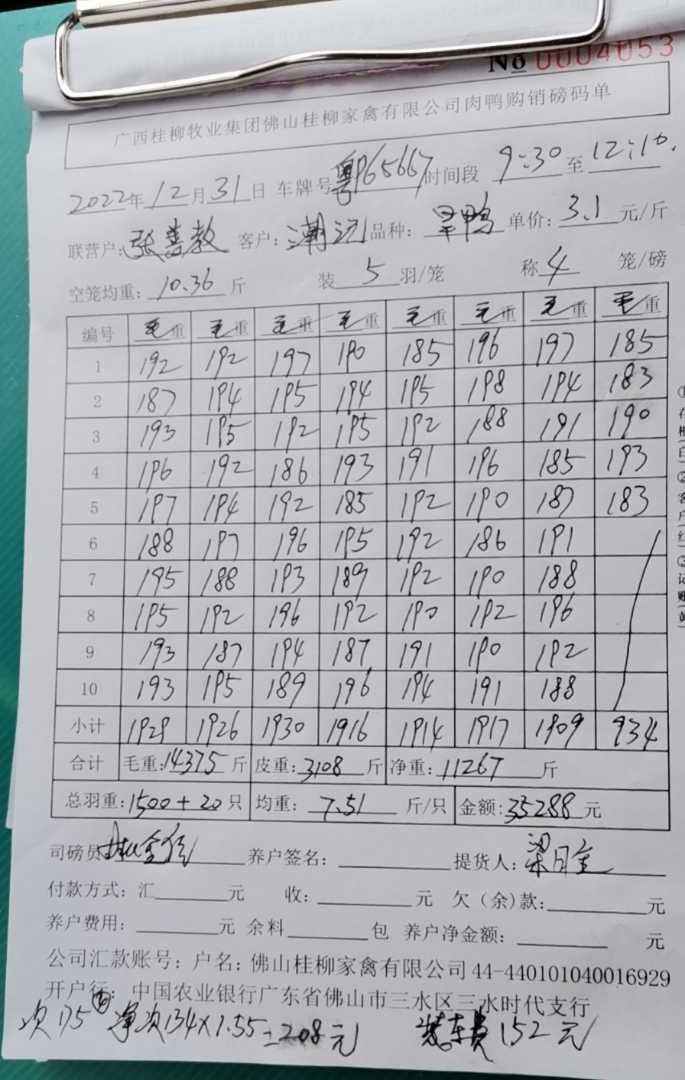 No 0004053
广西桂柳牧业集团佛山桂柳家禽有限公司肉鸭购销磅码单
2022年12月31日 车牌号粤P65667时间段 9:30 至 12:10.
联营户:张善教 客户:潮记 品种:旱鸭 单价:3.1 元/斤
空笼均重:10.36斤 装 5 羽/笼 称 4 笼/磅
编号 毛重 毛重 毛重 毛重 毛重 毛重 毛重 毛重
1 192 192 197 190 185 196 197 185
2 187 194 195 194 195 198 194 183
3 193 195 192 195 192 188 191 190
4 196 192 186 193 191 196 185 193
5 197 194 192 185 192 190 187 183
6 188 197 196 195 192 186 191
7 195 188 193 189 192 190 188
8 195 192 196 192 190 192 196
9 193 187 194 187 191 190 192
10 193 195 189 196 194 191 188
小计 1929 1926 1930 1916 1914 1917 1909 934
合计 毛重:14375斤 皮重:3108斤 净重:11267 斤
总羽重:1500+20只 均重: 7.51 斤/只 金额:35288元
司磅员 养户签名: 提货人:梁日金
付款方式:汇 元 收: 元 欠(余)款: 元
养户费用: 元 余料 包 养户净金额: 元
公司汇款账号:户名:佛山桂柳家禽有限公司44-440101040016929
开户行:中国农业银行广东省佛山市三水区三水时代支行
次175 净次134×1.55=208元 装车费152元